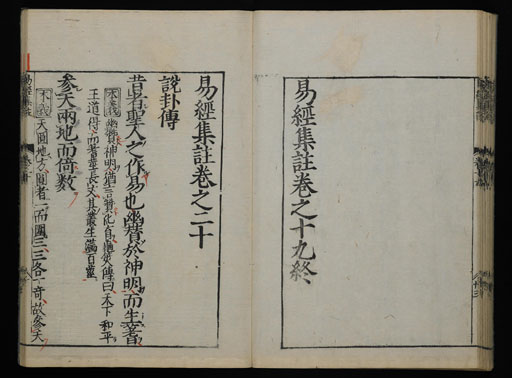 易經集註卷之十九終
易經集註卷之二十
說卦傳
昔者聖人之作易也幽贊於神明而生蓍
本義幽贊神明猶言贊化育龜筴傳曰天下和平
王道得而蓍莖長丈其叢生滿百莖
參天兩地而倚數
本義天圓地方圓者一而圍三三各一奇故參天